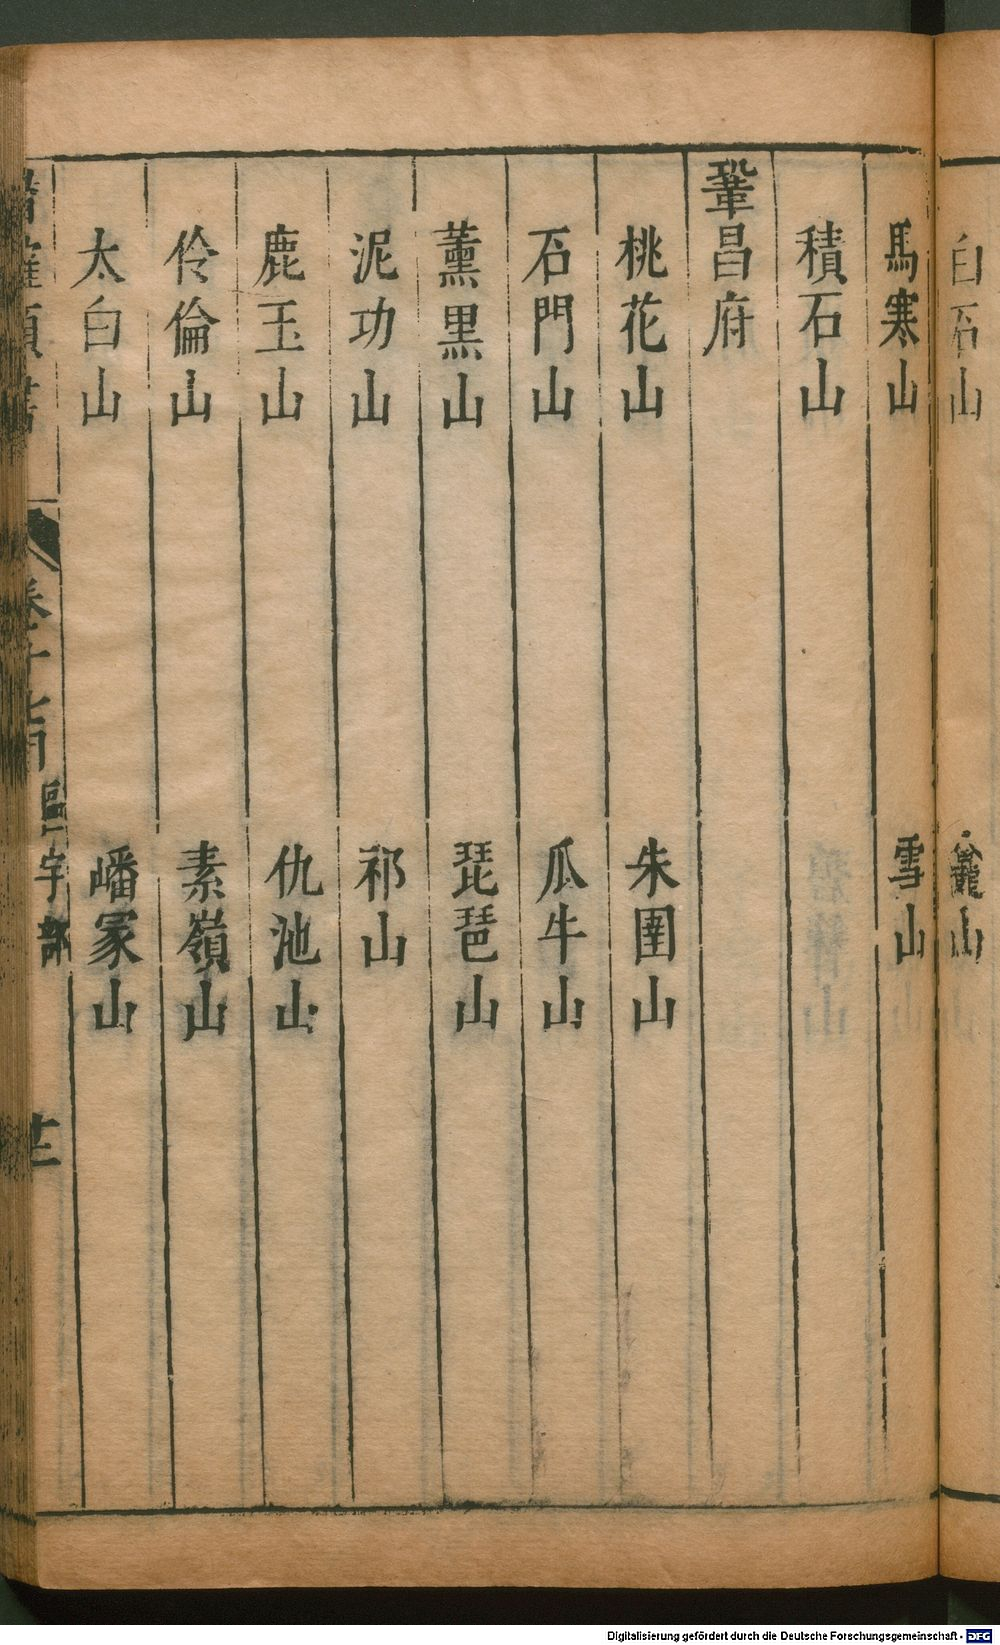 白石山
山
馬寒山 雪山
積石山
鞏昌府
桃花山 朱圉山
石門山 瓜牛山
薰黑山 琵琶山
泥功山 祁山
鹿玉山 仇池山
伶倫山 素嶺山
太白山 嶓冢山
卷十
宇部
Digitalisierung gefördert durch die Deutsche Forschungsgemeinschaft - DFG